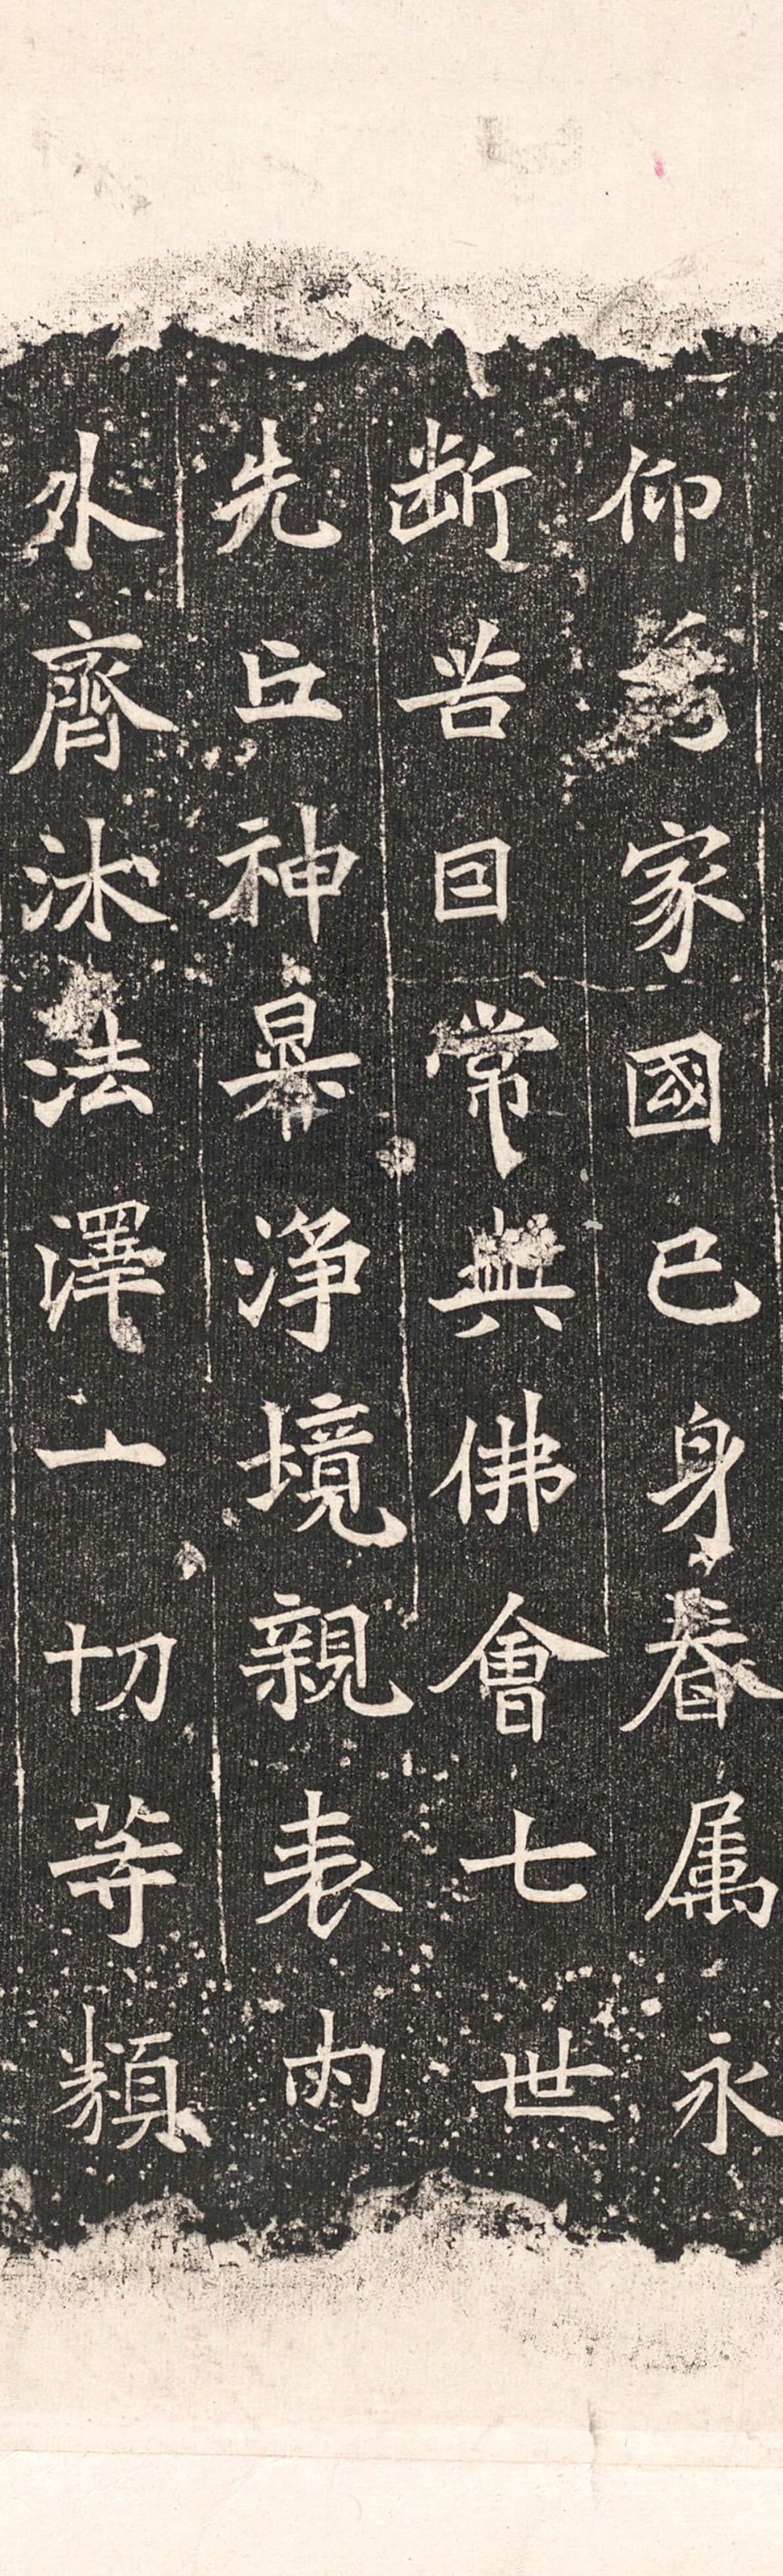 仰為家國已身眷属永
断苦囙常與佛會七世
先亡神昇净境親表内
外齊沐法澤一切等類